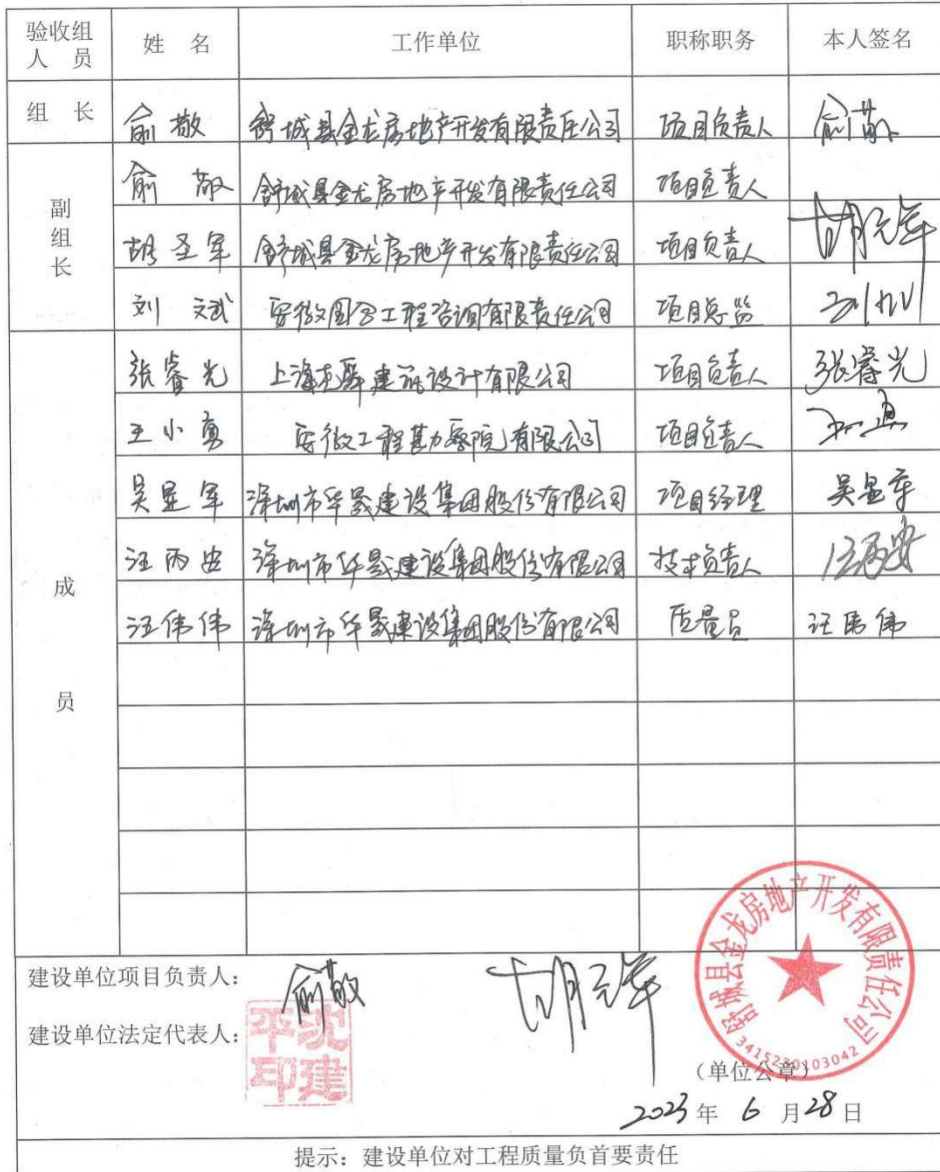 验收组人员 姓 名 工作单位 职称职务 本人签名
组 长 俞敬 舒城县金龙房地产开发有限责任公司 项目负责人 俞敬
副组长 俞敬 舒城县金龙房地产开发有限责任公司 项目负责人
胡圣军 舒城县金龙房地产开发有限责任公司 项目负责人
刘斌 安徽 工程咨询有限责任公司 项目总监
成员 张睿光 上海 建筑设计有限公司 项目负责人 张睿光
王小勇 安徽工程勘察院有限公司 项目负责人
吴显军 深圳市华晟建设集团股份有限公司 项目经理 吴显军
汪丙安 深圳市华晟建设集团股份有限公司 技术负责人 汪丙安
汪伟伟 深圳市华晟建设集团股份有限公司 质量员 汪伟伟
建设单位项目负责人: 俞敬
建设单位法定代表人:
舒城县金龙房地产开发有限责任公司
3415230103042
(单位公章)
2023 年 6 月 28 日
提示:建设单位对工程质量负首要责任